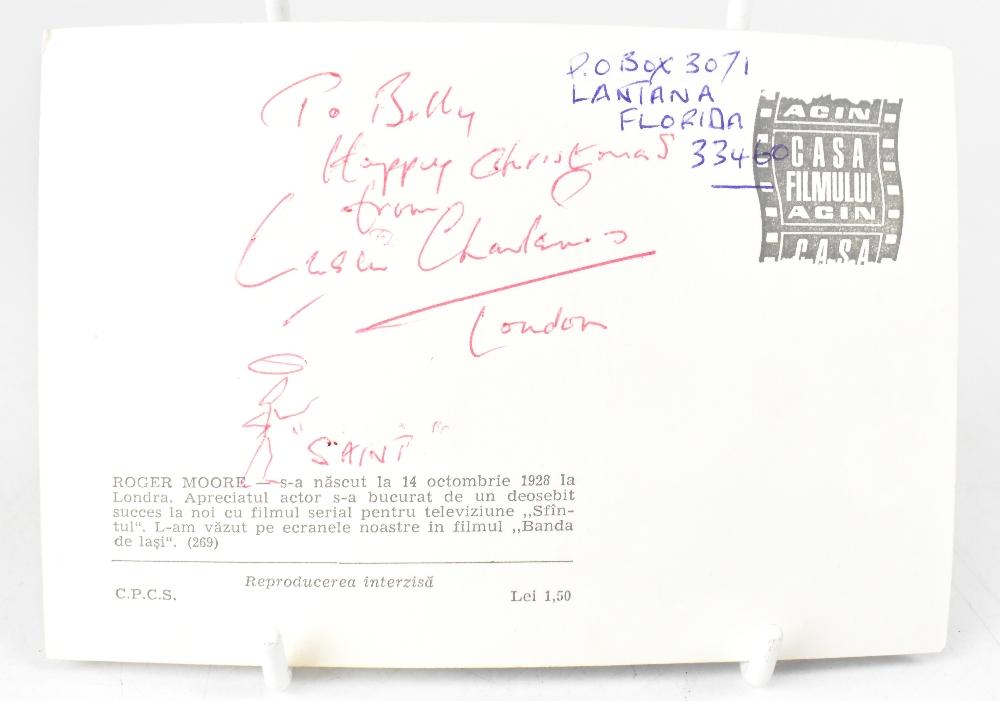 To Billy
Happy Christmas
from
Leslie Charteris
London
"SAINT"
P.O Box 3071
LANTANA
FLORIDA
33460
ACIN
CASA
FILMULUI
ACIN
CASA
ROGER MOORE — s-a născut la 14 octombrie 1928 la
Londra. Apreciatul actor s-a bucurat de un deosebit
succes la noi cu filmul serial pentru televiziune „Sfîn-
tul“. L-am văzut pe ecranele noastre in filmul „Banda
de lași“. (269)
Reproducerea interzisă
C.P.C.S.
Lei 1,50